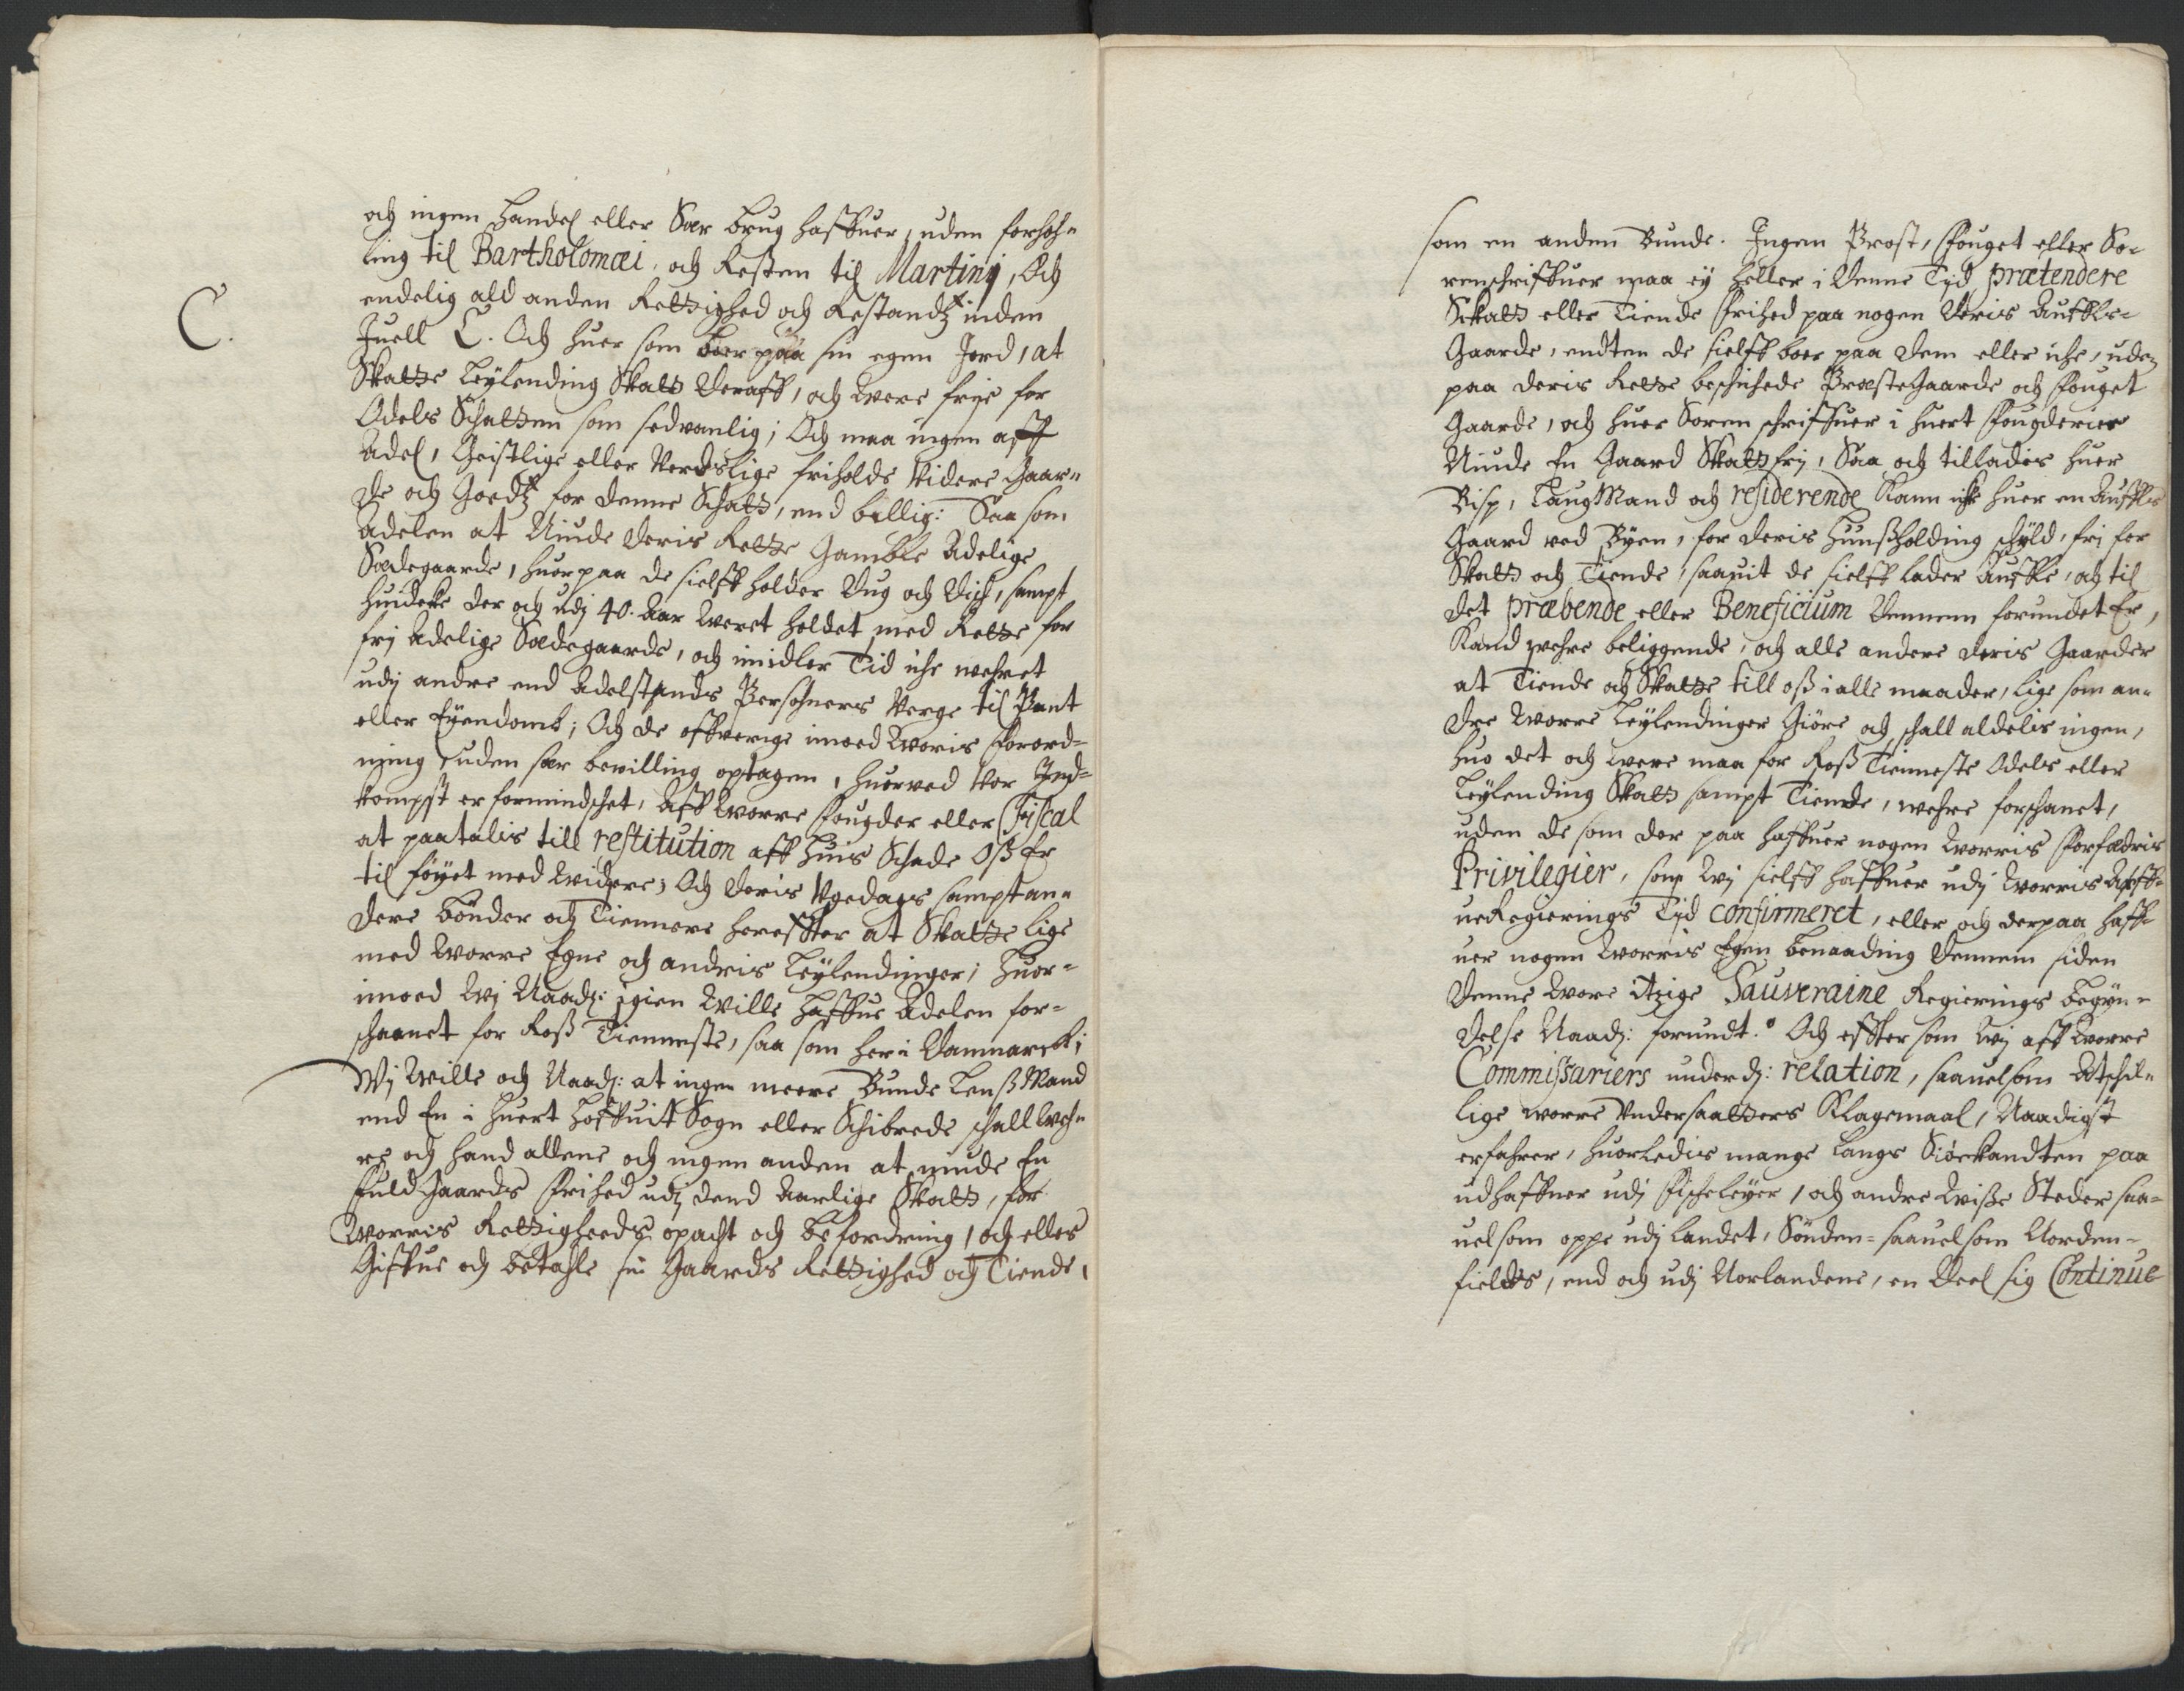 och ingen Handel eller Sær brug haffuer, uden forhøh-
ling til Bartholomæi, och Resten til Martinj, Och
endelig ald anden Rettighed och Restandtz inden
C.
Juell C. Och huer som boer paa sin egen Jord, at
Skatte Leylending Skatt deraff, och were frije for
Odels Schatten som sedvanlig; Och maa ingen aff
Adel, Geistlige eller Verdslige friholde Videre Gaar-
de och Goedtz for denne Schatt, end billig: Saa som
Adelen at Niude deris Rette Gamble Adelige
Sædegaarde, huorpaa de sielff holder Dug och Disch, sampt
huicke der och udj 40. Aar Weret holdet med Rette for
frj Adelige Sædegaarde, och imidler Tid iche wehret
udj andre end Adelstands Persohners Verge til Pant
eller Eyendomb; Och de offwerige imoed Woris Forord-
ning uden sær bewilling optagen, huorved Vor Ind-
kompst er formindschet, Aff Worre Fougder eller Fiscal
at paatalis till restitution aff huis Schade Oß Er
til føyet med Widere; Och deris Vgedags sampt an-
dere bønder och Tiennere hereffter at Skatte lige
med Worre Egne och andris Leylendinger; Huor-
imoed Wj Naadj: igien Wille haffue Adelen for-
schaanet for Roß Tienneste, saa som her i Danmarck;
Wj Wille och Naadj: at ingen meere Bunde LensMand
end En i huert HoffuitSogn eller Schibrede schall Weh-
re och hand allene och ingen anden at niude En
fuld Gaards Frihed udj dend Aarlige Skatt, for
Worris Rettigheeds opacht och befordring, och elles
Giffue och betahle sin Gaards Rettighed och Tiende,
som en anden Bunde. Ingen Prost, Fouget eller So-
renschriffuer maa ey heller i denne Tjd prætendere
Schatt eller Tiende Frihed paa nogen deris Auffls-
Gaarde, endten de sielff boer paa dem eller iche, uden
paa deris Rette beschichede PræsteGaarde och Fouget
Gaarde, och huer Soren schriffuer i huert Fougderier
Niude En Gaard Skattfrj, Saa och tilladis huer
Bisp, LaugMand och residerende Kannicke huer en Auffls
Gaard ved Byen, for deris Hunßholding schyld, fri for
Skatt och Tiende, saauit de sielff lader Auffle, och til
det præbende eller Beneficium dennem forundet Er,
Kand wehre beliggende, och alle andere deris Gaarder
at Tiende och Skatte till oß i alle maader, lige som an-
dre Worre Leylendinger Giøre och schall aldelis ingen,
huo det och were maa for Roß Tienneste Odels eller
Leylending Skatt sampt Tiende, wehre forschanet,
uden de som der paa haffuer nogen Worris Forfædris
Privilegier, som Wj sielff haffuer udj Worris Arff-
ueRegierings Tjd confirmeret, eller och derpaa haff-
uer nogen Worris Egen benaading dennem siden
denne Wore itzige Sauveraine Regierings begyn-
delse Naadj: forundt. Och effter som Wj aff Worre
Commissariers underdj: relation, saauelsom Adtschil-
lige worre Undersaatters Klagemaal, Naadigst
erfahrer, huorledis mange langs Siøekandten paa
udhaffner udj Fischeleyer, och andre Wisse Steder saa-
uelsom oppe udj Landet, Sønden- saauelsom Norden-
fields, end och udj Norlandene, en Deel sig Continue